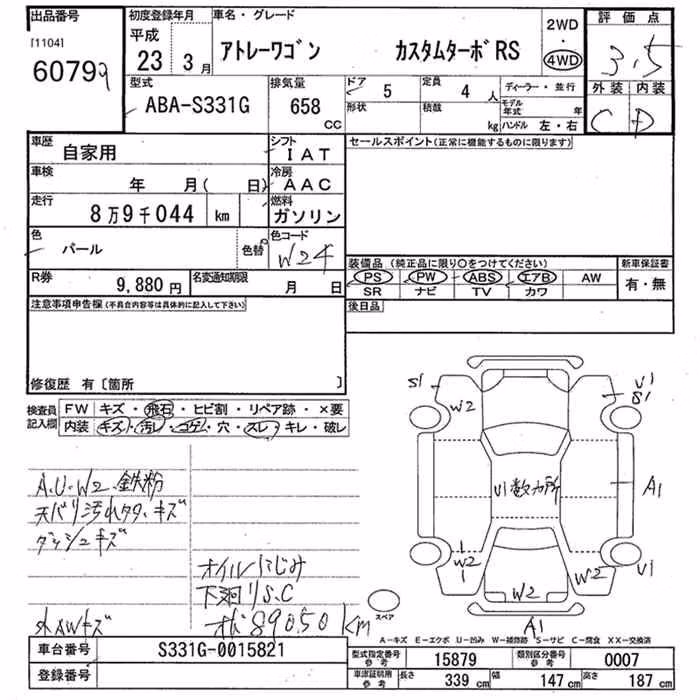 出品番号
[1104]
6079
初度登録年月
平成
23年 3月
車名・グレード
アトレーワゴン カスタムターボRS
2WD
・
4WD
評価点
3.5
外装 内装
C D
型式
ABA-S331G
排気量
658
CC
ドア
5
定員
4 人
ディーラー・並行
形状
積載
kg
モデル年式 年
ハンドル 左・右
車歴
自家用
シフト
IAT
車検
年 月( 日)
冷房
AAC
走行
8万9千044 km
燃料
ガソリン
色
パール
色替
色コード
W24
R券
9,880円
名変通知期限
月 日
セールスポイント(正常に機能するものに限ります)
装備品(純正品に限り○をつけてください)
新車保証書
PS PW ABS エアB AW
SR ナビ TV カワ
有・無
後日品
注意事項申告欄(不具合内容等は具体的に記入して下さい)
修復歴 有〔箇所 〕
検査員記入欄
FW キズ・飛石・ヒビ割・リペア跡・×要
内装 キズ・汚れ・コゲ・穴・スレ・キレ・破レ
A.U.W2.鉄粉
天バリ汚れタタ、キズ
ダッシュキズ
オイルにじみ
下廻りS.C
外AWキズ
89050km
S1
W2
V1
S1
V1数カ所
A1
W2
W2
V1
W2
A1
スペア
A-キズ E-エクボ U-凹み W-補修跡 S-サビ C-腐食 XX-交換済
車台番号
S331G-0015821
登録番号
型式指定番号 参考
15879
類別区分番号 参考
0007
車庫証明用 参考
長さ 339 cm 幅 147 cm 高さ 187 cm